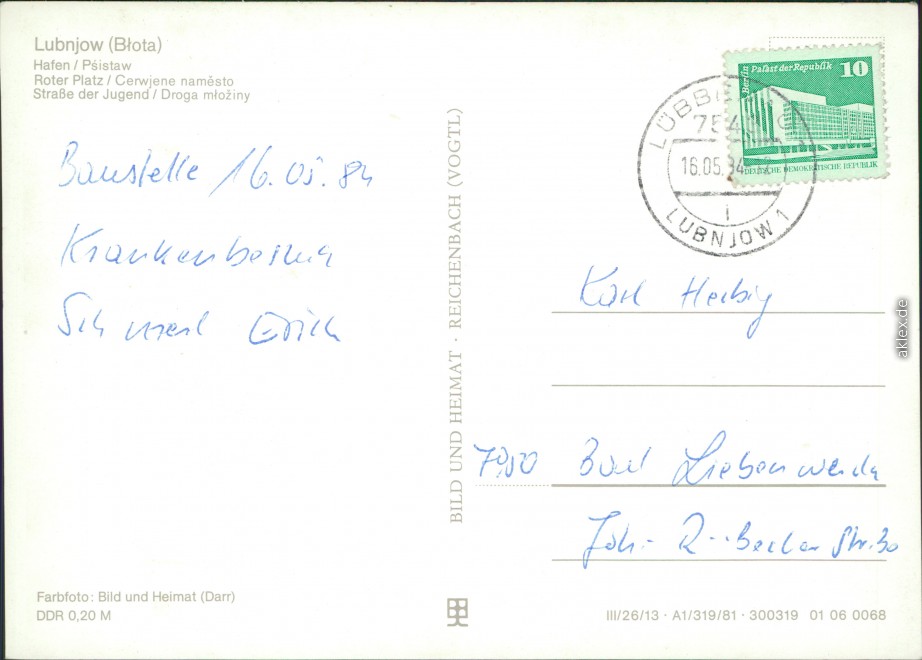 Lubnjow (Błota)
Hafen / Pśistaw
Roter Platz / Cerwjene naměsto
Straße der Jugend / Droga młoźiny
Baustelle 16.05.84
Krankenbesuch
Erich
BILD UND HEIMAT · REICHENBACH (VOGTL)
Berlin
Palast der Republik 10
DEUTSCHE DEMOKRATISCHE REPUBLIK
LÜBBE
754
16.05.84
i
LUBNJOW 1
Karl Herbig
7950 Bad Liebenwerda
Joh.-R.-Becher Str. 30
Farbfoto: Bild und Heimat (Darr)
DDR 0,20 M
III/26/13 · A1/319/81 · 300319 01 06 0068
aklex.de